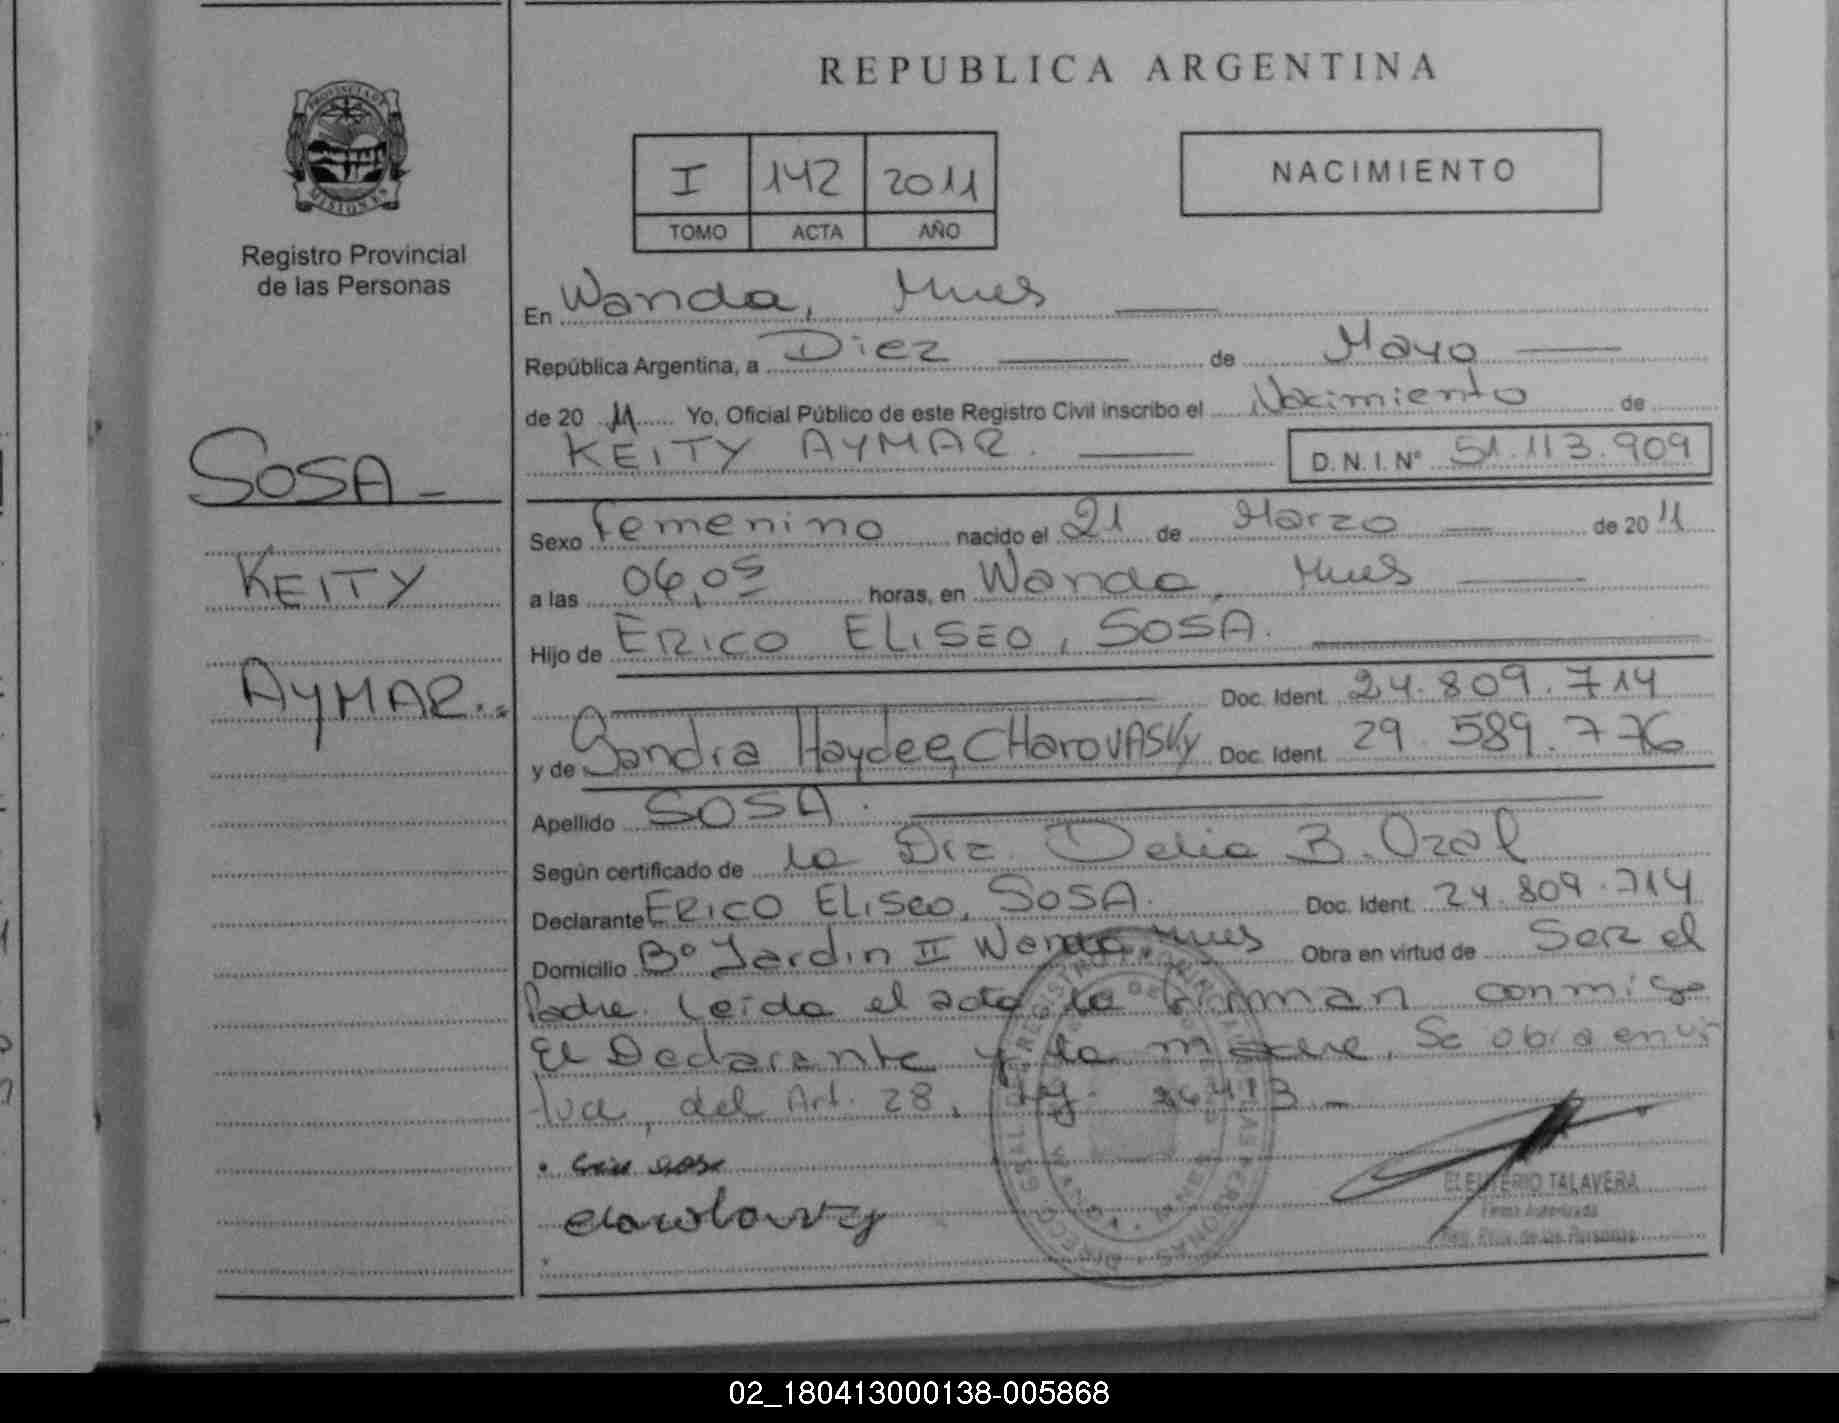 REPUBLICA ARGENTINA
PROVINCIA DE MISIONES
Registro Provincial
de las Personas
I 142 2011
TOMO ACTA AÑO
NACIMIENTO
SOSA -
KEITY
AYMAR.-
En Wanda, Mnes
República Argentina, a Diez de Mayo
de 20 11 Yo, Oficial Público de este Registro Civil inscribo el Nacimiento de
KEITY AYMAR. D.N.I.Nº 51.113.909
Sexo Femenino nacido el 21 de Marzo de 20 11
a las 06,05 horas, en Wanda, Mnes
Hijo de ERICO ELISEO, SOSA.
Doc. Ident. 24.809.714
y de Sandra Haydee, CHAROVASKY Doc. Ident. 29.589.776
Apellido SOSA.
Según certificado de la Dra. Delia B.
Declarante ERICO ELISEO, SOSA. Doc. Ident. 24.809.714
Domicilio Bº Jardin II Wanda, Mnes Obra en virtud de Ser el
Padre. Leida el acta la firman conmigo
El Declarante y la madre. Se obra en vir
tud, del Art. 28, Ley. 26413.-
ELEUTERIO TALAVERA
Firma Autorizada
Reg. Prov. de las Personas
02_180413000138-005868